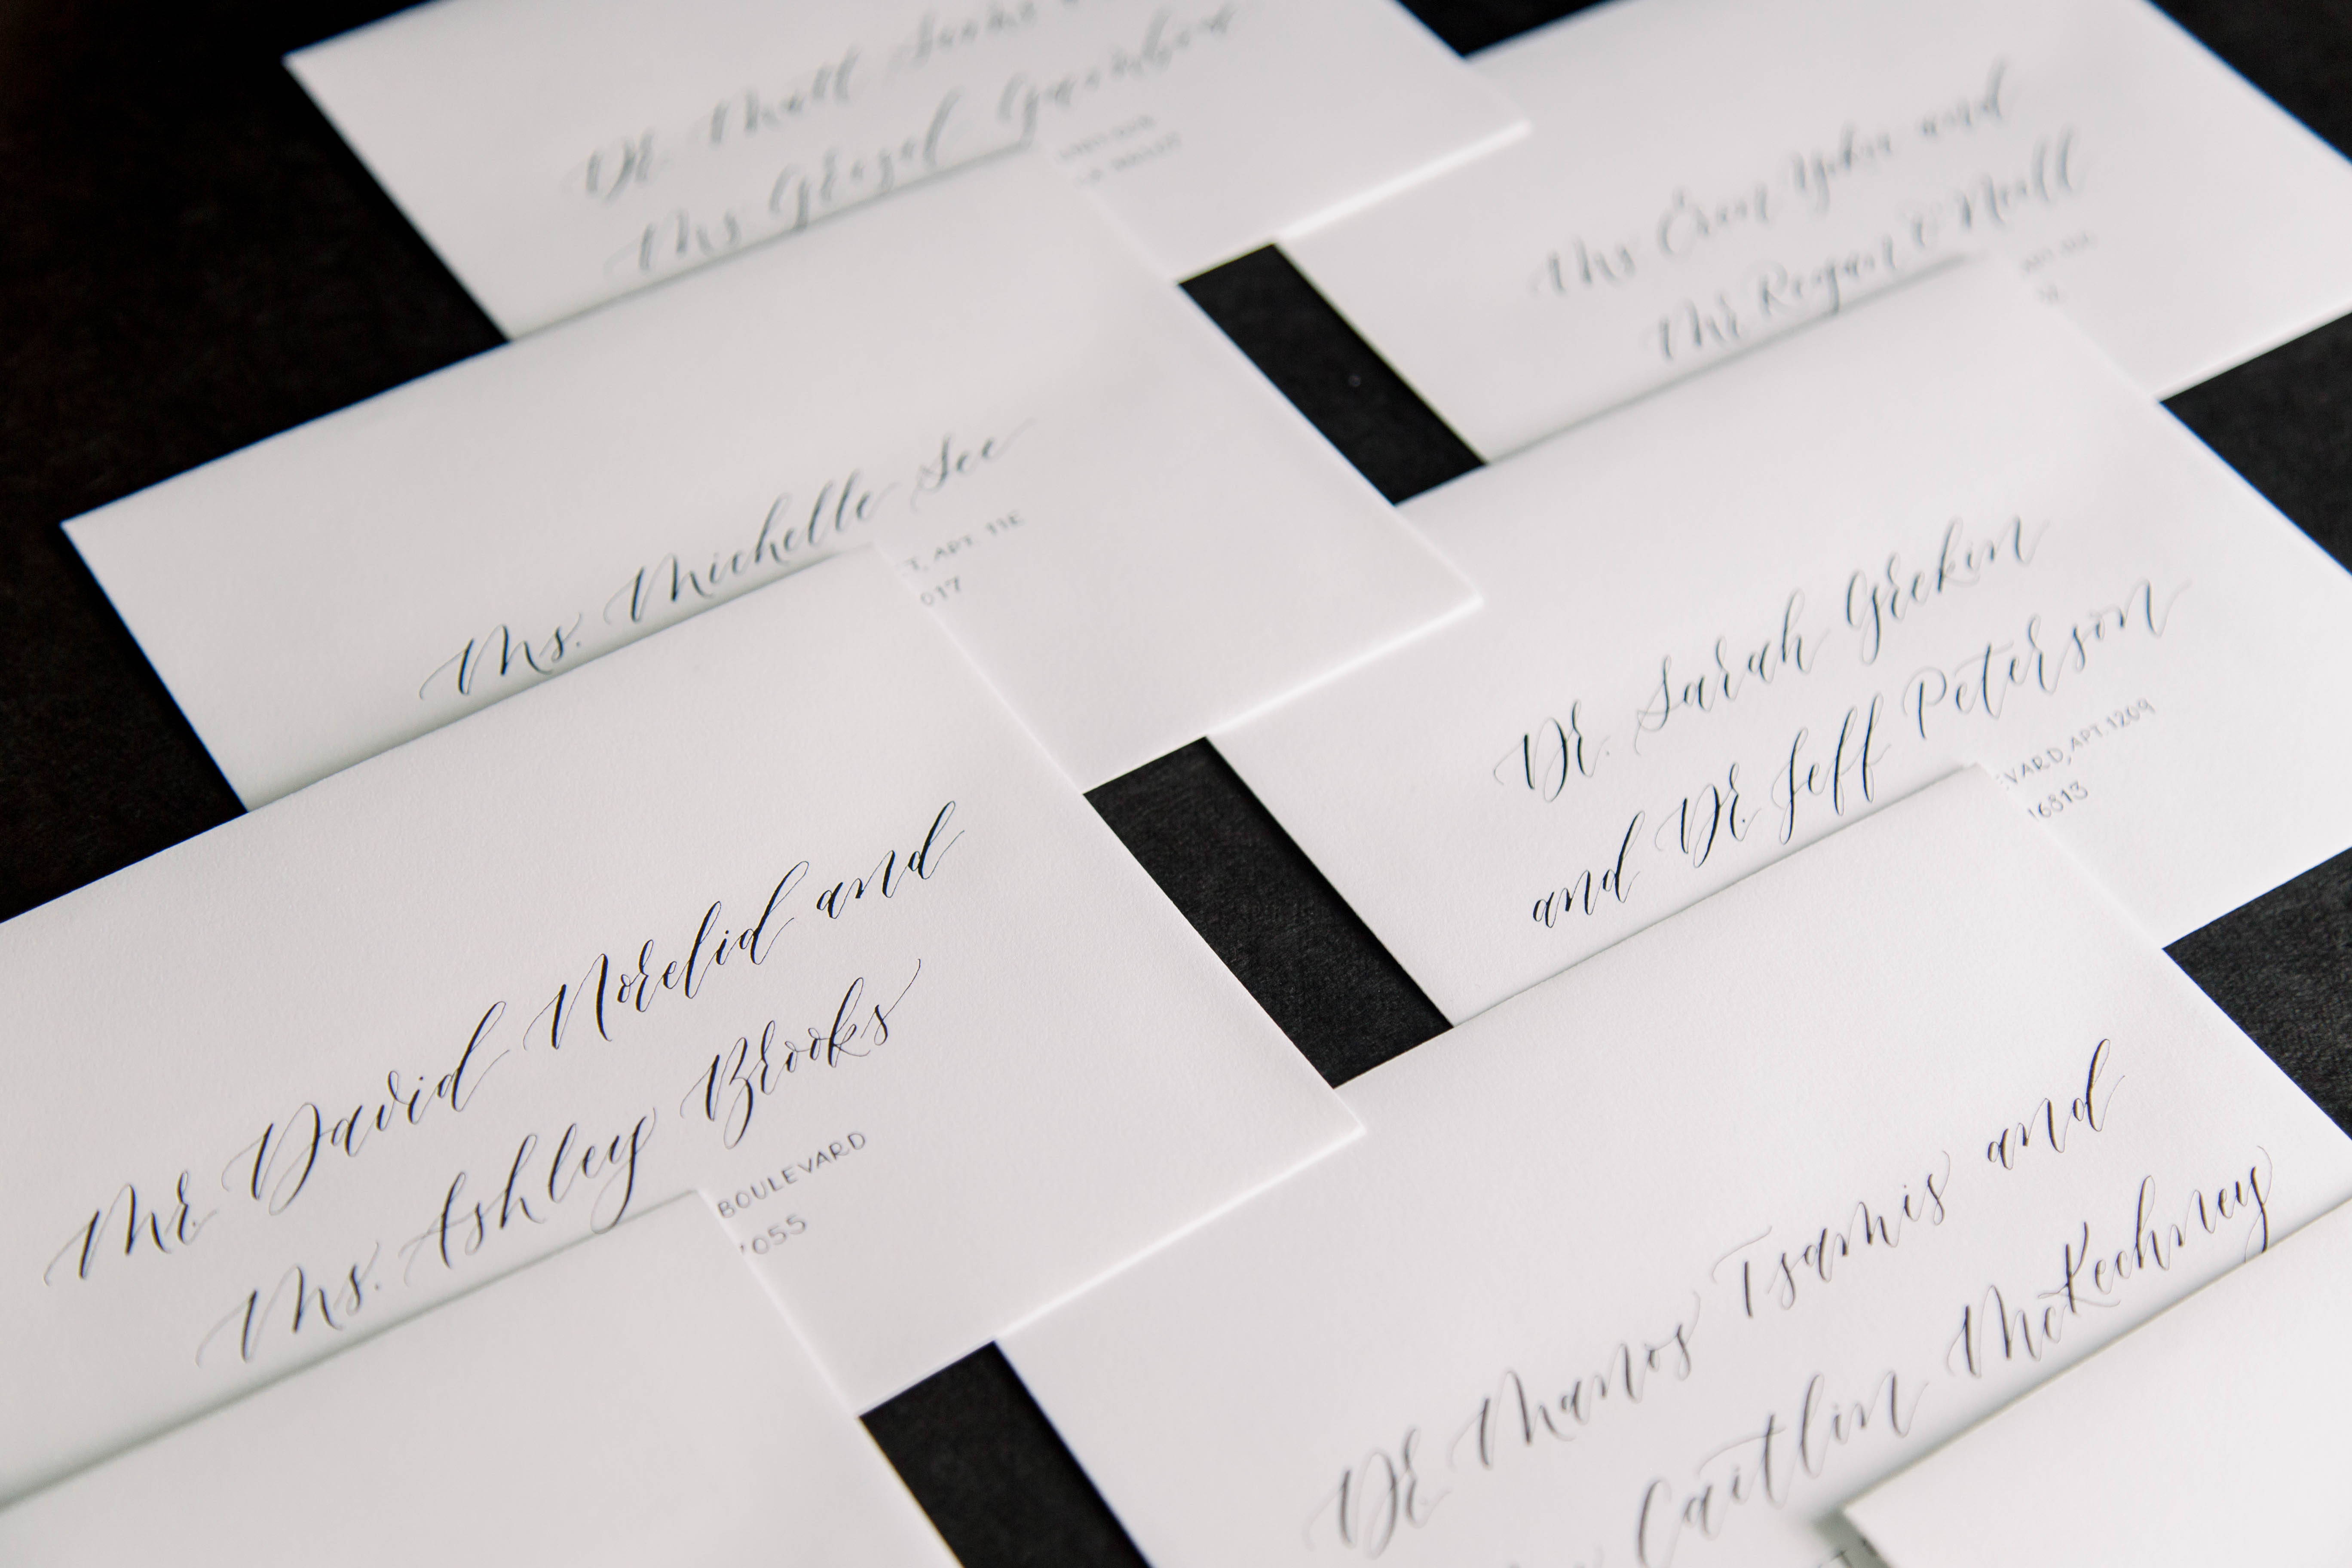 Dr. Matt
Ms. Grezel
Ms. Erin and
Mr. Regan O'Neill
Ms. Michelle See
T, APT. 11E
017
Dr. Sarah Grekin
and Dr. Jeff Peterson
EVARD, APT. 1209
16813
Mr. David Norelid and
Ms. Ashley Brooks
BOULEVARD
055
Dr. Manos Tsamis and
Caitlin McKechney